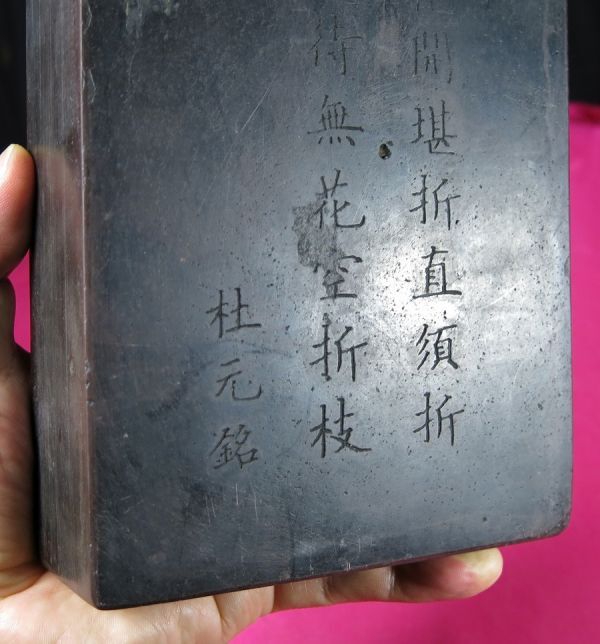 開堪折直須折
待無花空折枝
杜元銘